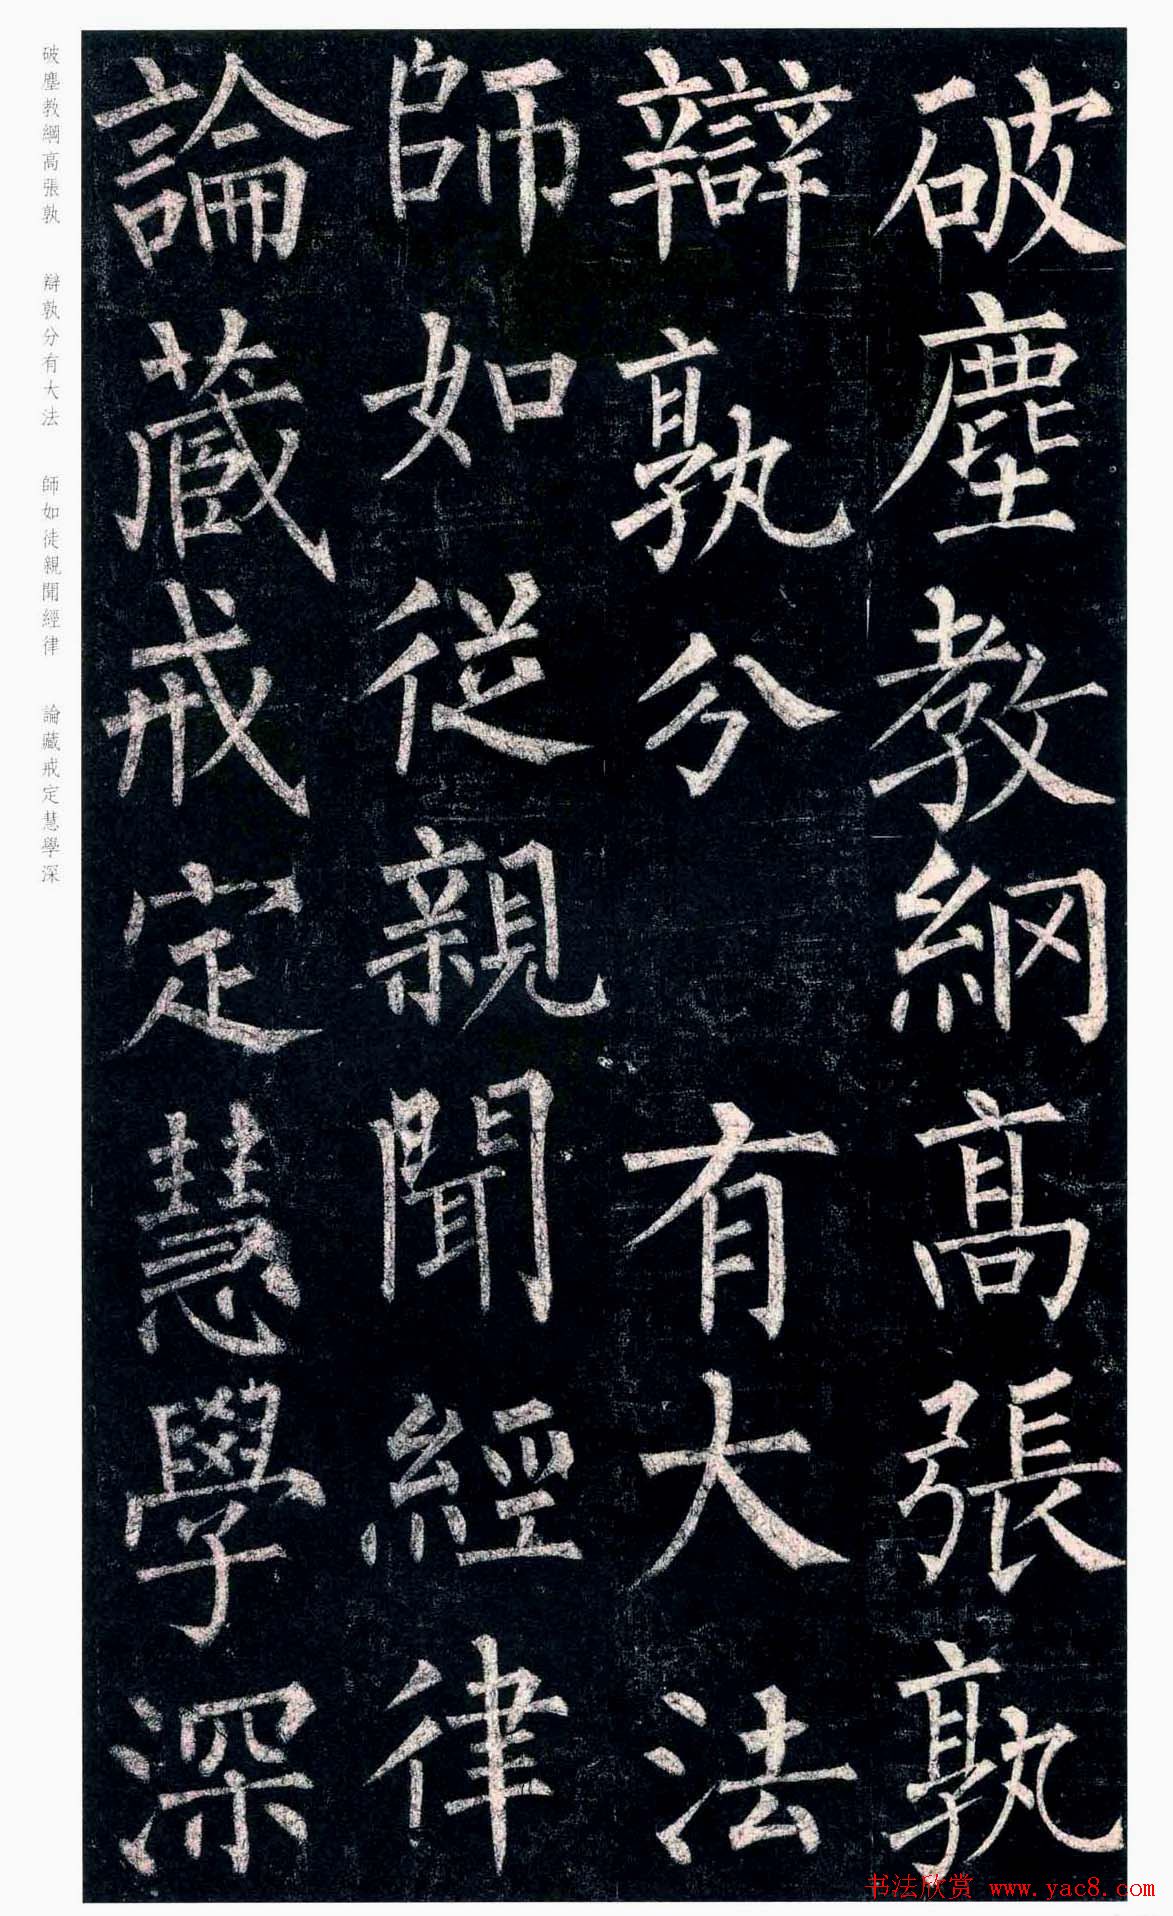 破塵教網高張孰
辯孰分有大法
師如從親聞經律
論藏戒定慧學深
破塵教綱高張孰 辯孰分有大法 師如徒親聞經律 論藏戒定慧學深
书法欣赏 www.yac8.com